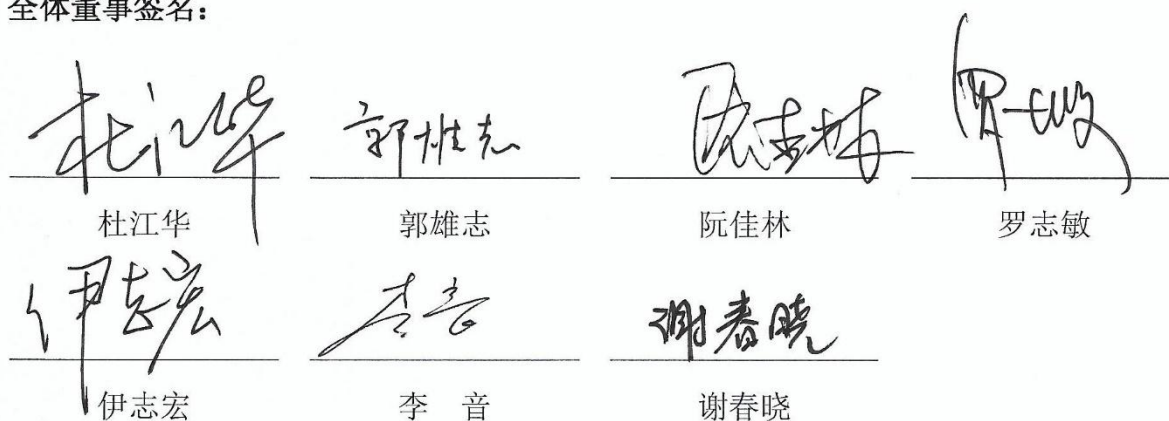 全体董事签名：
杜江华 郭雄志 阮佳林 罗志敏
杜江华 郭雄志 阮佳林 罗志敏
伊志宏 李音 谢春晓
伊志宏 李 音 谢春晓